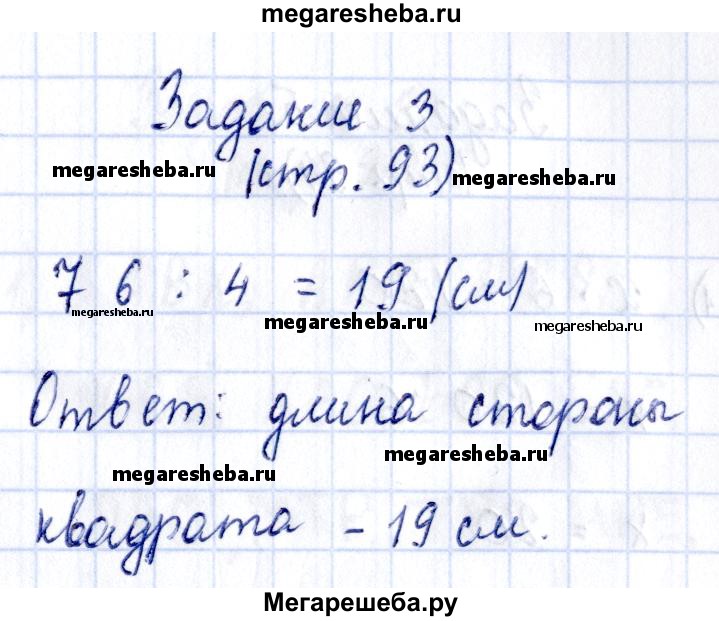 megaresheba.ru
Задание 3
megaresheba.ru (стр. 93) megaresheba.ru
76 : 4 = 19 (см)
megaresheba.ru megaresheba.ru megaresheba.ru
Ответ: длина стороны
megaresheba.ru megaresheba.ru
квадрата - 19 см.
Мегарешеба.ру